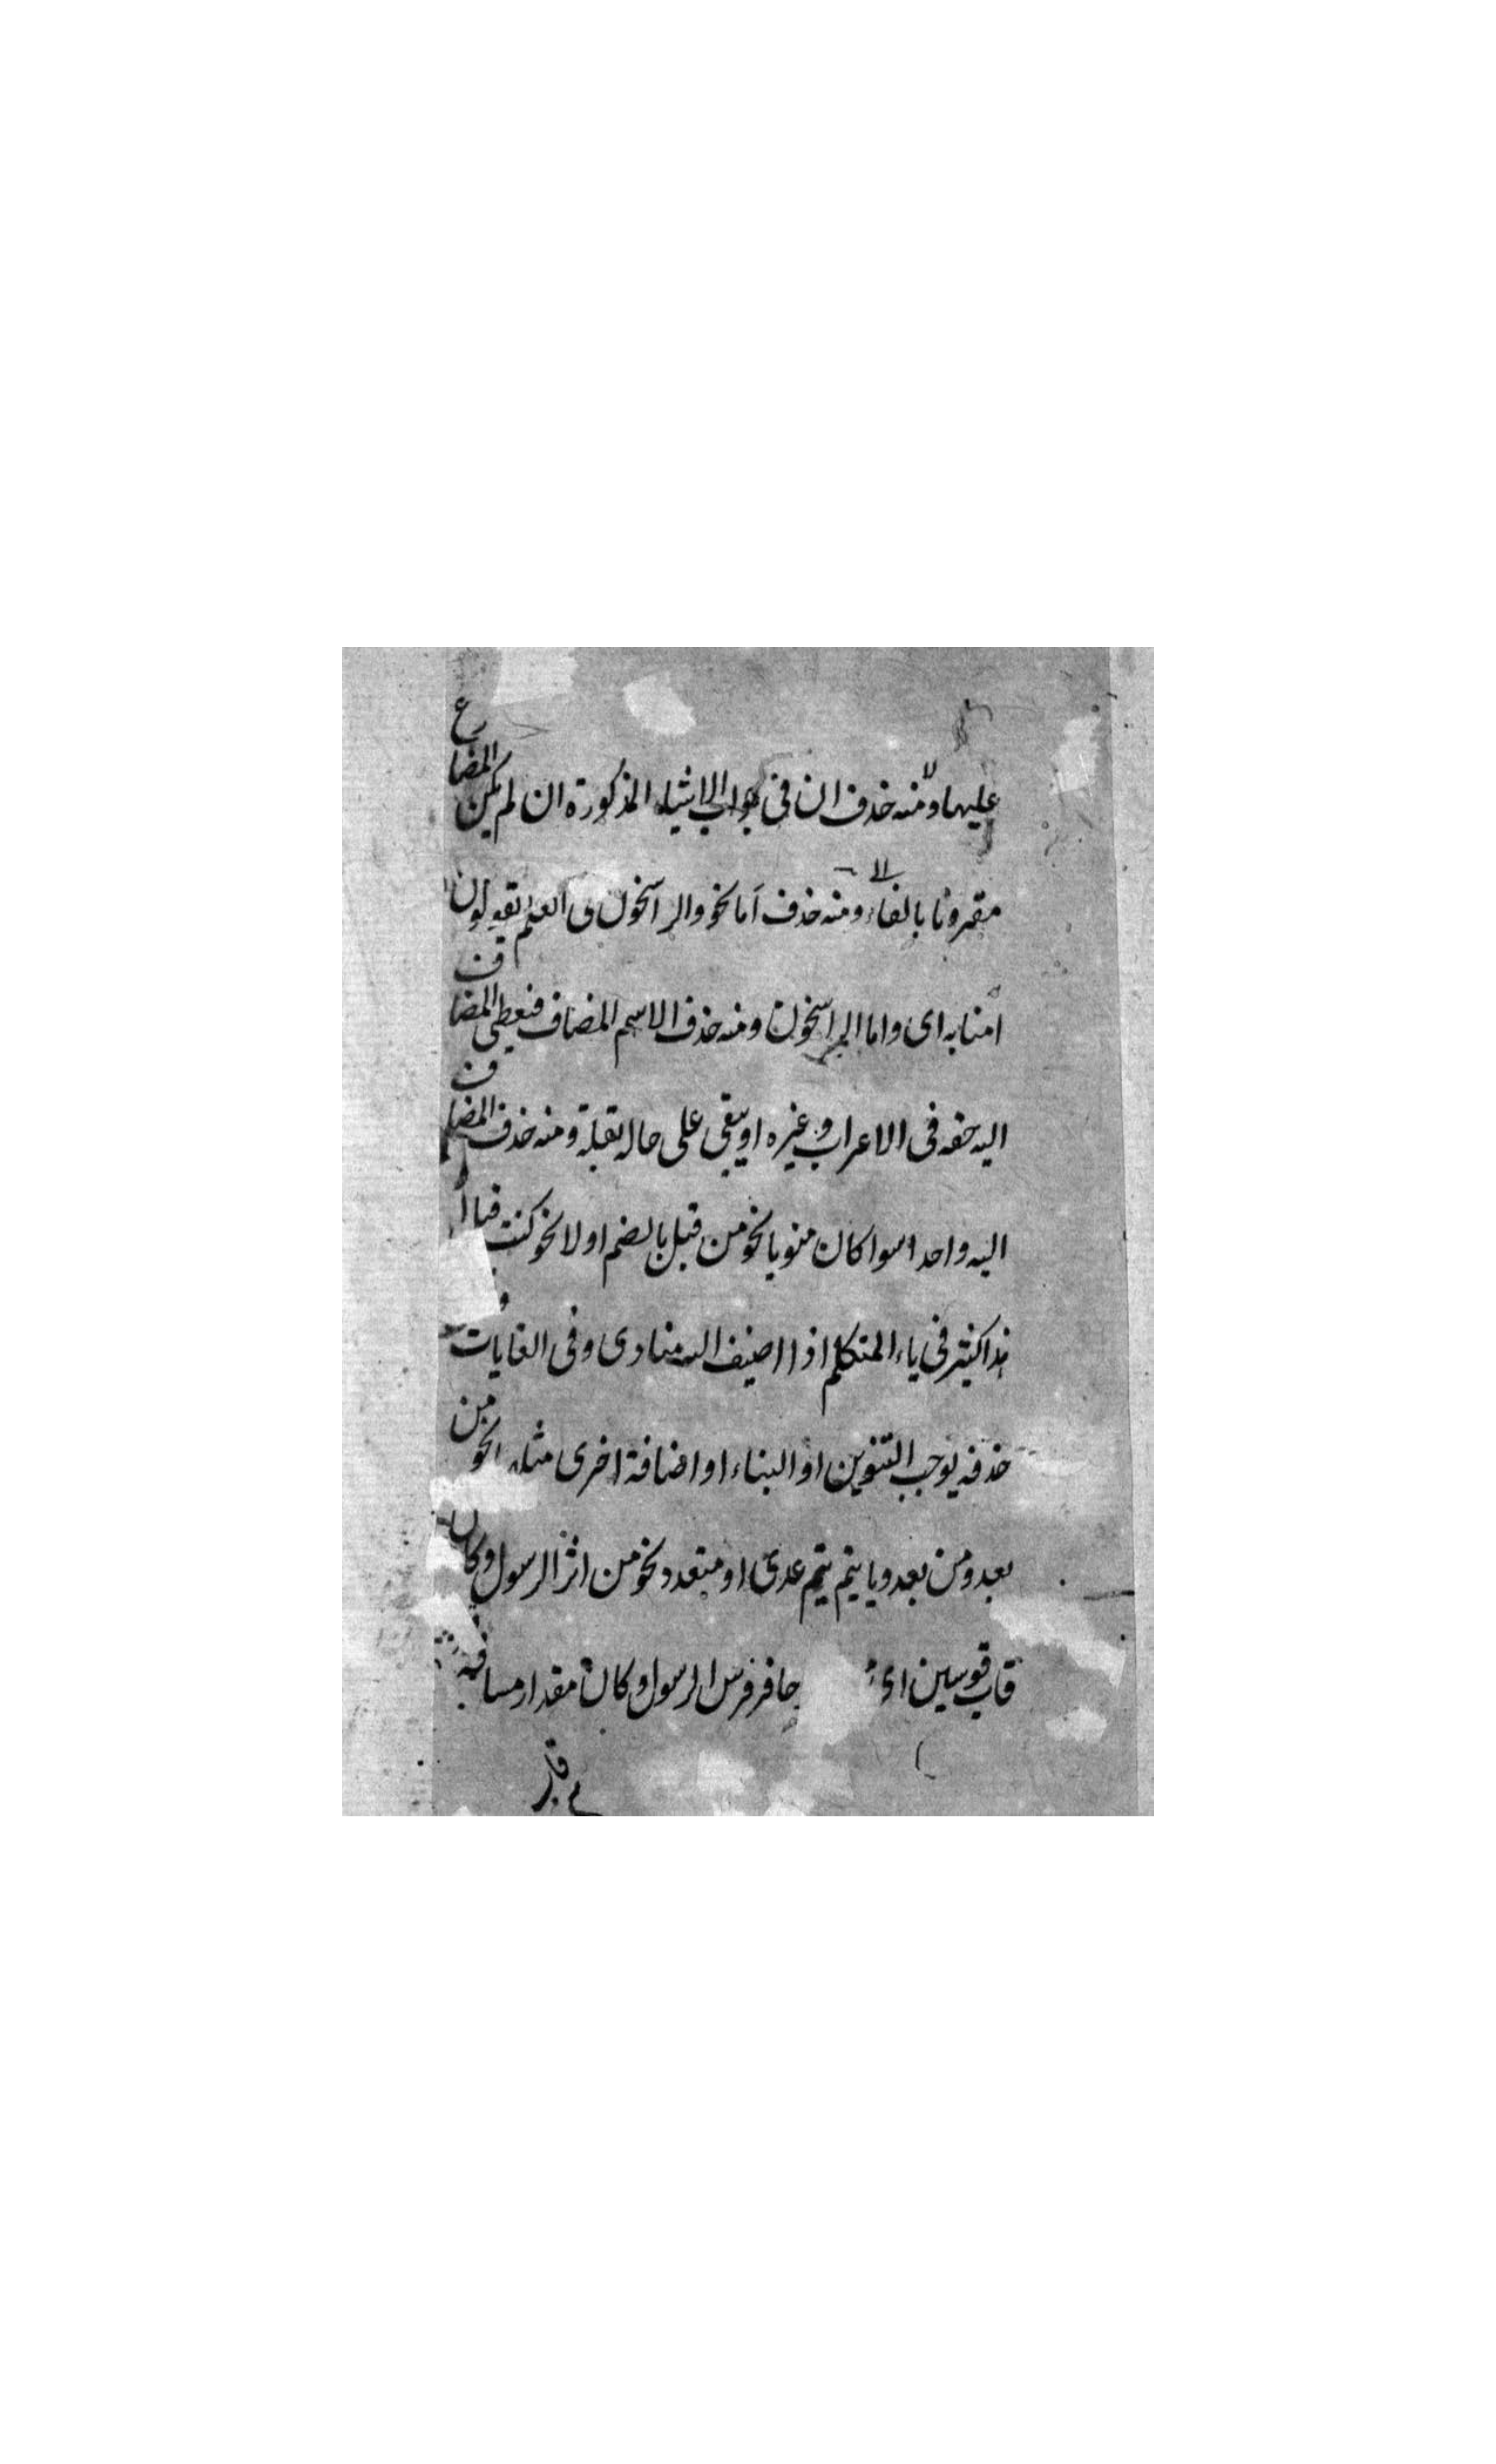 عليها ومنه حذف ان فى جواب الاشياء المذكورة ان لم يكن المضارع
مقرونا بالفاء ومنه حذف اما نحو والراسخون فى العلم يقولون
امنا به اى واما الراسخون ومنه حذف الاسم المضاف فيعطى المضاف
اليه حقه فى الاعراب وغيره او يبقى على حاله بقلة ومنه حذف المضاف
اليه واحدا سوا كان منويا نحو من قبل بالضم او لا نحو كنت قبلا
هذا كثير فى ياء المتكلم اذا اضيف اليه منادى وفى الغايات
حذفه يوجب التنوين او البناء او اضافة اخرى مثله نحو من
بعد ومن بعد ويا تيم تيم عدى او متعدد نحو من اثر الرسول وكان
قاب قوسين اى حافر فرس الرسول وكان مقدار مسافة